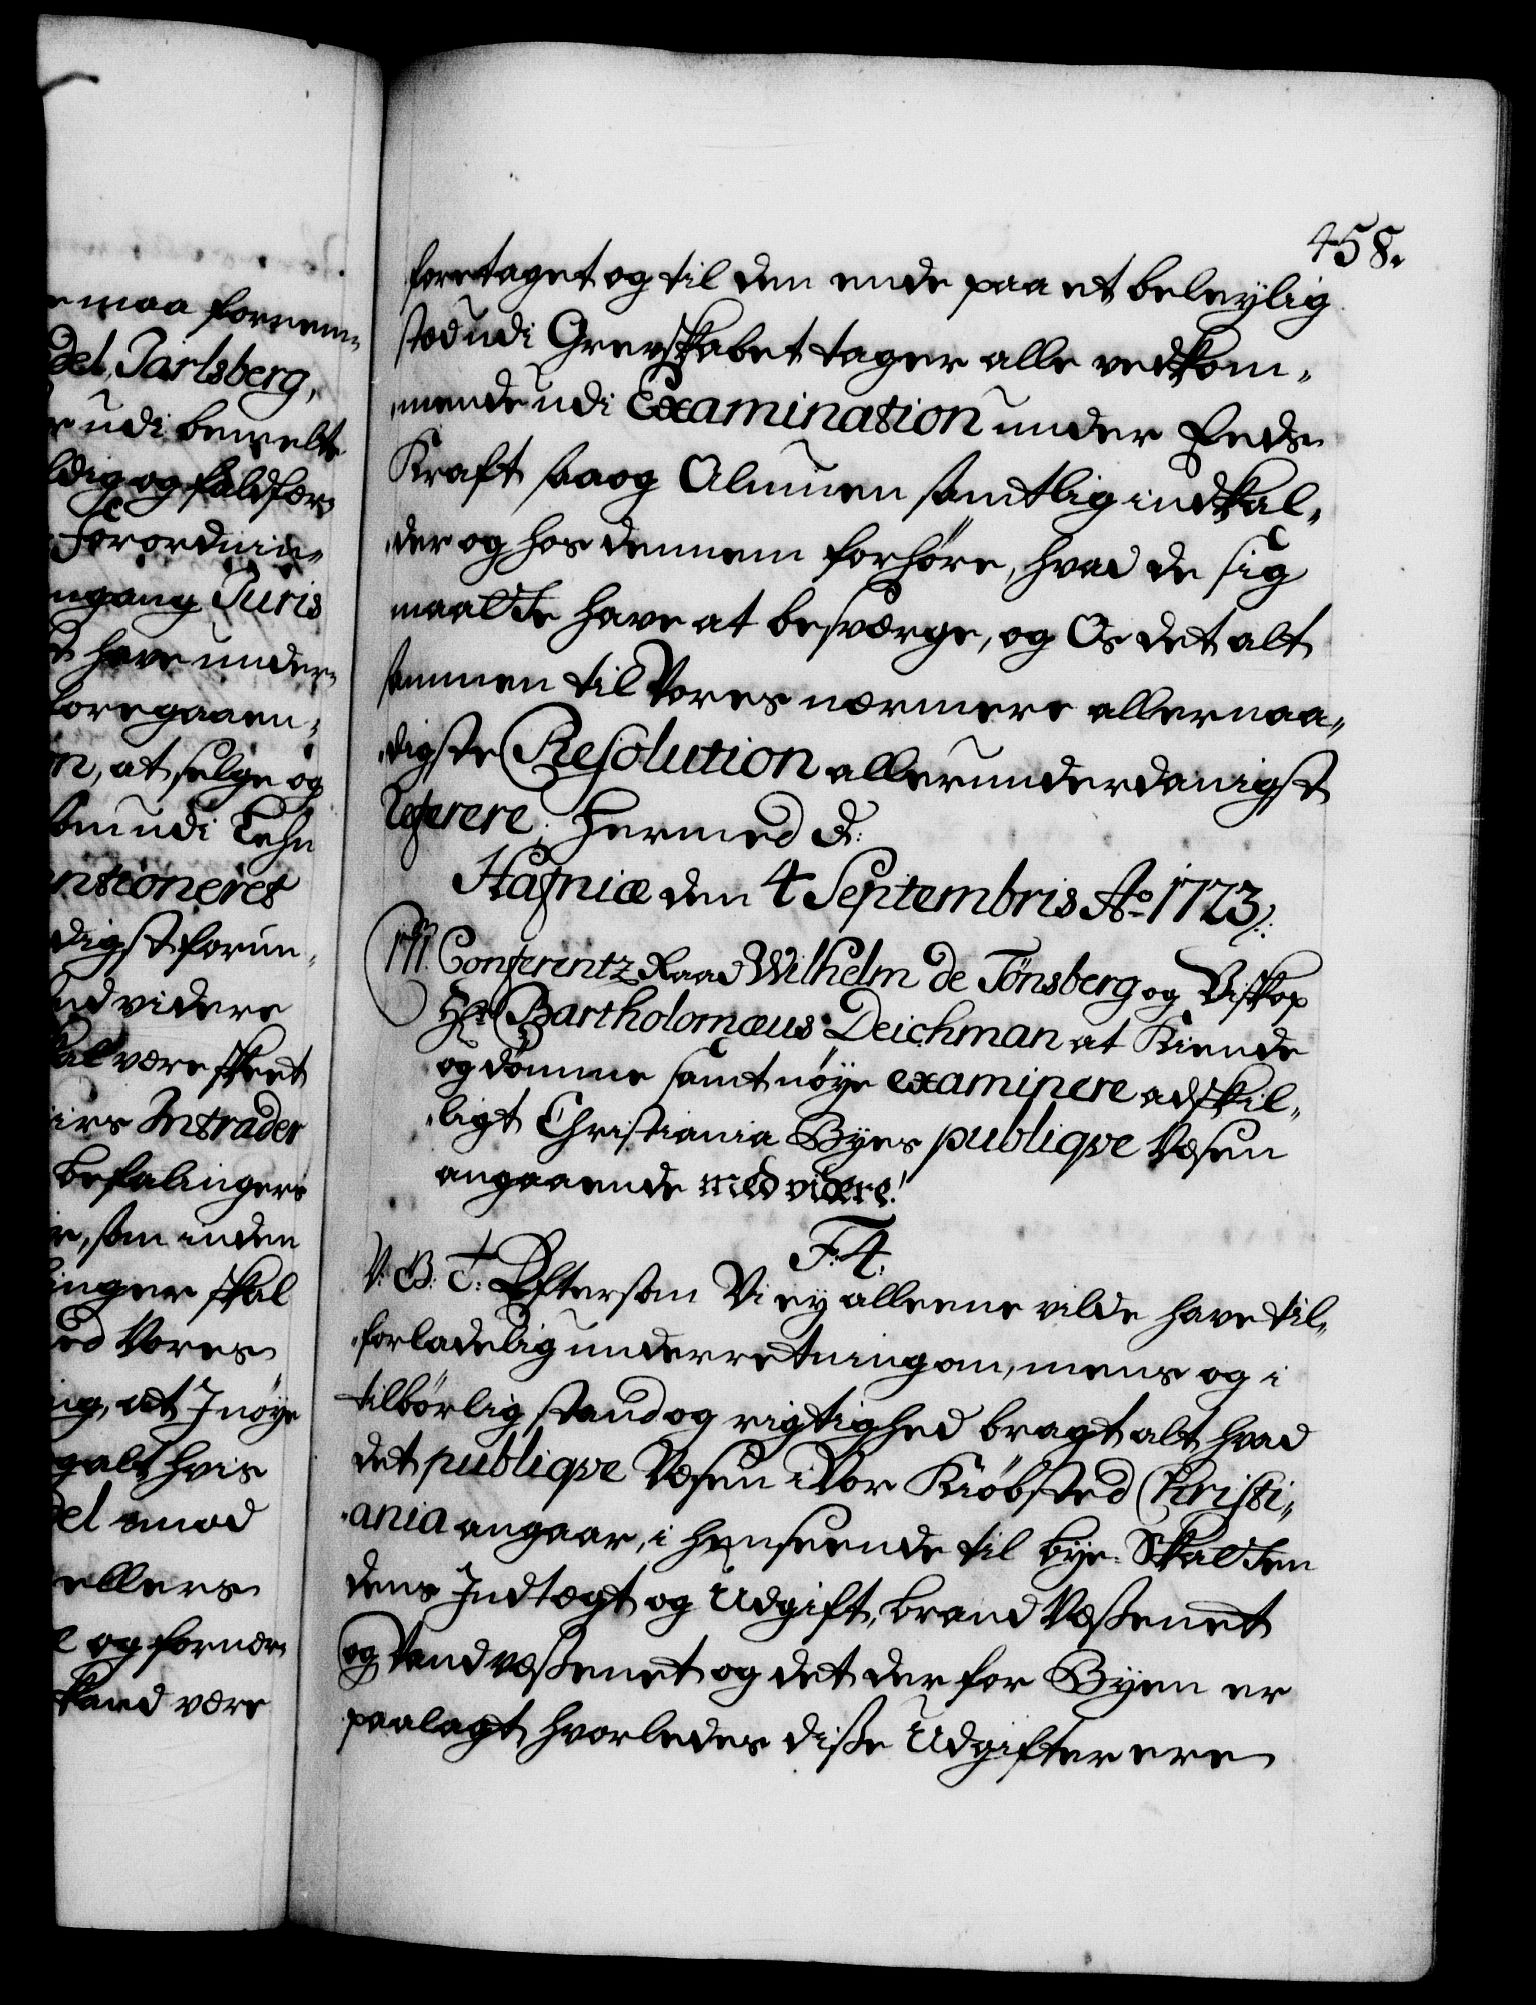 maa fornem¬
del Jarlsberg,
udi bemelte
ldig og faldfær
Forordnin¬
ngang Juris
have under¬
foregaaen¬
n, at selge og
udi Lehn
entioneret
digst forun¬
ved videre
skal være skeet
Intrader
befalinger
som inden
inger skal
ved Vores
ig, at I nøye
galt hvis
del imod
ellers
og fornær
skand være
458.
foretaget og til den ende paa et beleylig
sted udi Grevskabet tager alle vedkom¬
mende udi Examination under Eeds
Kraft saa og Almuen samtlig indkal¬
der og hos dennem forhøre, hvad de sig
maatte have at besværge, og Os det alt
sammen til Vores nærmere allernaa¬
digste Resolution allerunderdanigst
referere; Hermed d:
Hafniæ den 4 Septembris Ao 1723.
Conferentz Raad Wilhelm de Tönsberg og Biskop
Hr Bartholomæus Deichman at Kiende
og dømme samt nøye examinere adskil¬
ligt Christiania Byes publiqve Væsen
angaaende med videre.
F: 4.
V: B: T: Eftersom Vi ey alleene vilde have til¬
forladelig underretning om, mens og i
tilbørlig stand og rigtighed bragt alt hvad
det publiqve Væsen i Vor Kiøbsted Christi¬
ania angaar, i henseende til bye-Skatten
dens Indtægt og Udgift, brand Væsenet
og Vandvæsenet og det der for Byen er
paalagt, hvorledes disse Udgifter ere